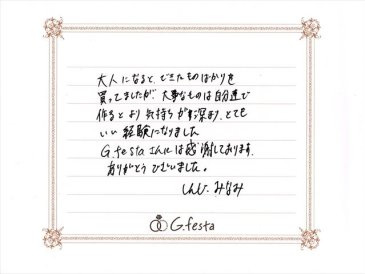 大人になると、できたものばかりを
買ってましたが、大事なものは自分達で
作ると より 気持ちが深まり、とても
いい 経験になりました
G.festaさんには感謝しております。
ありがとう ございました。
しんじ・みなみ
G.festa